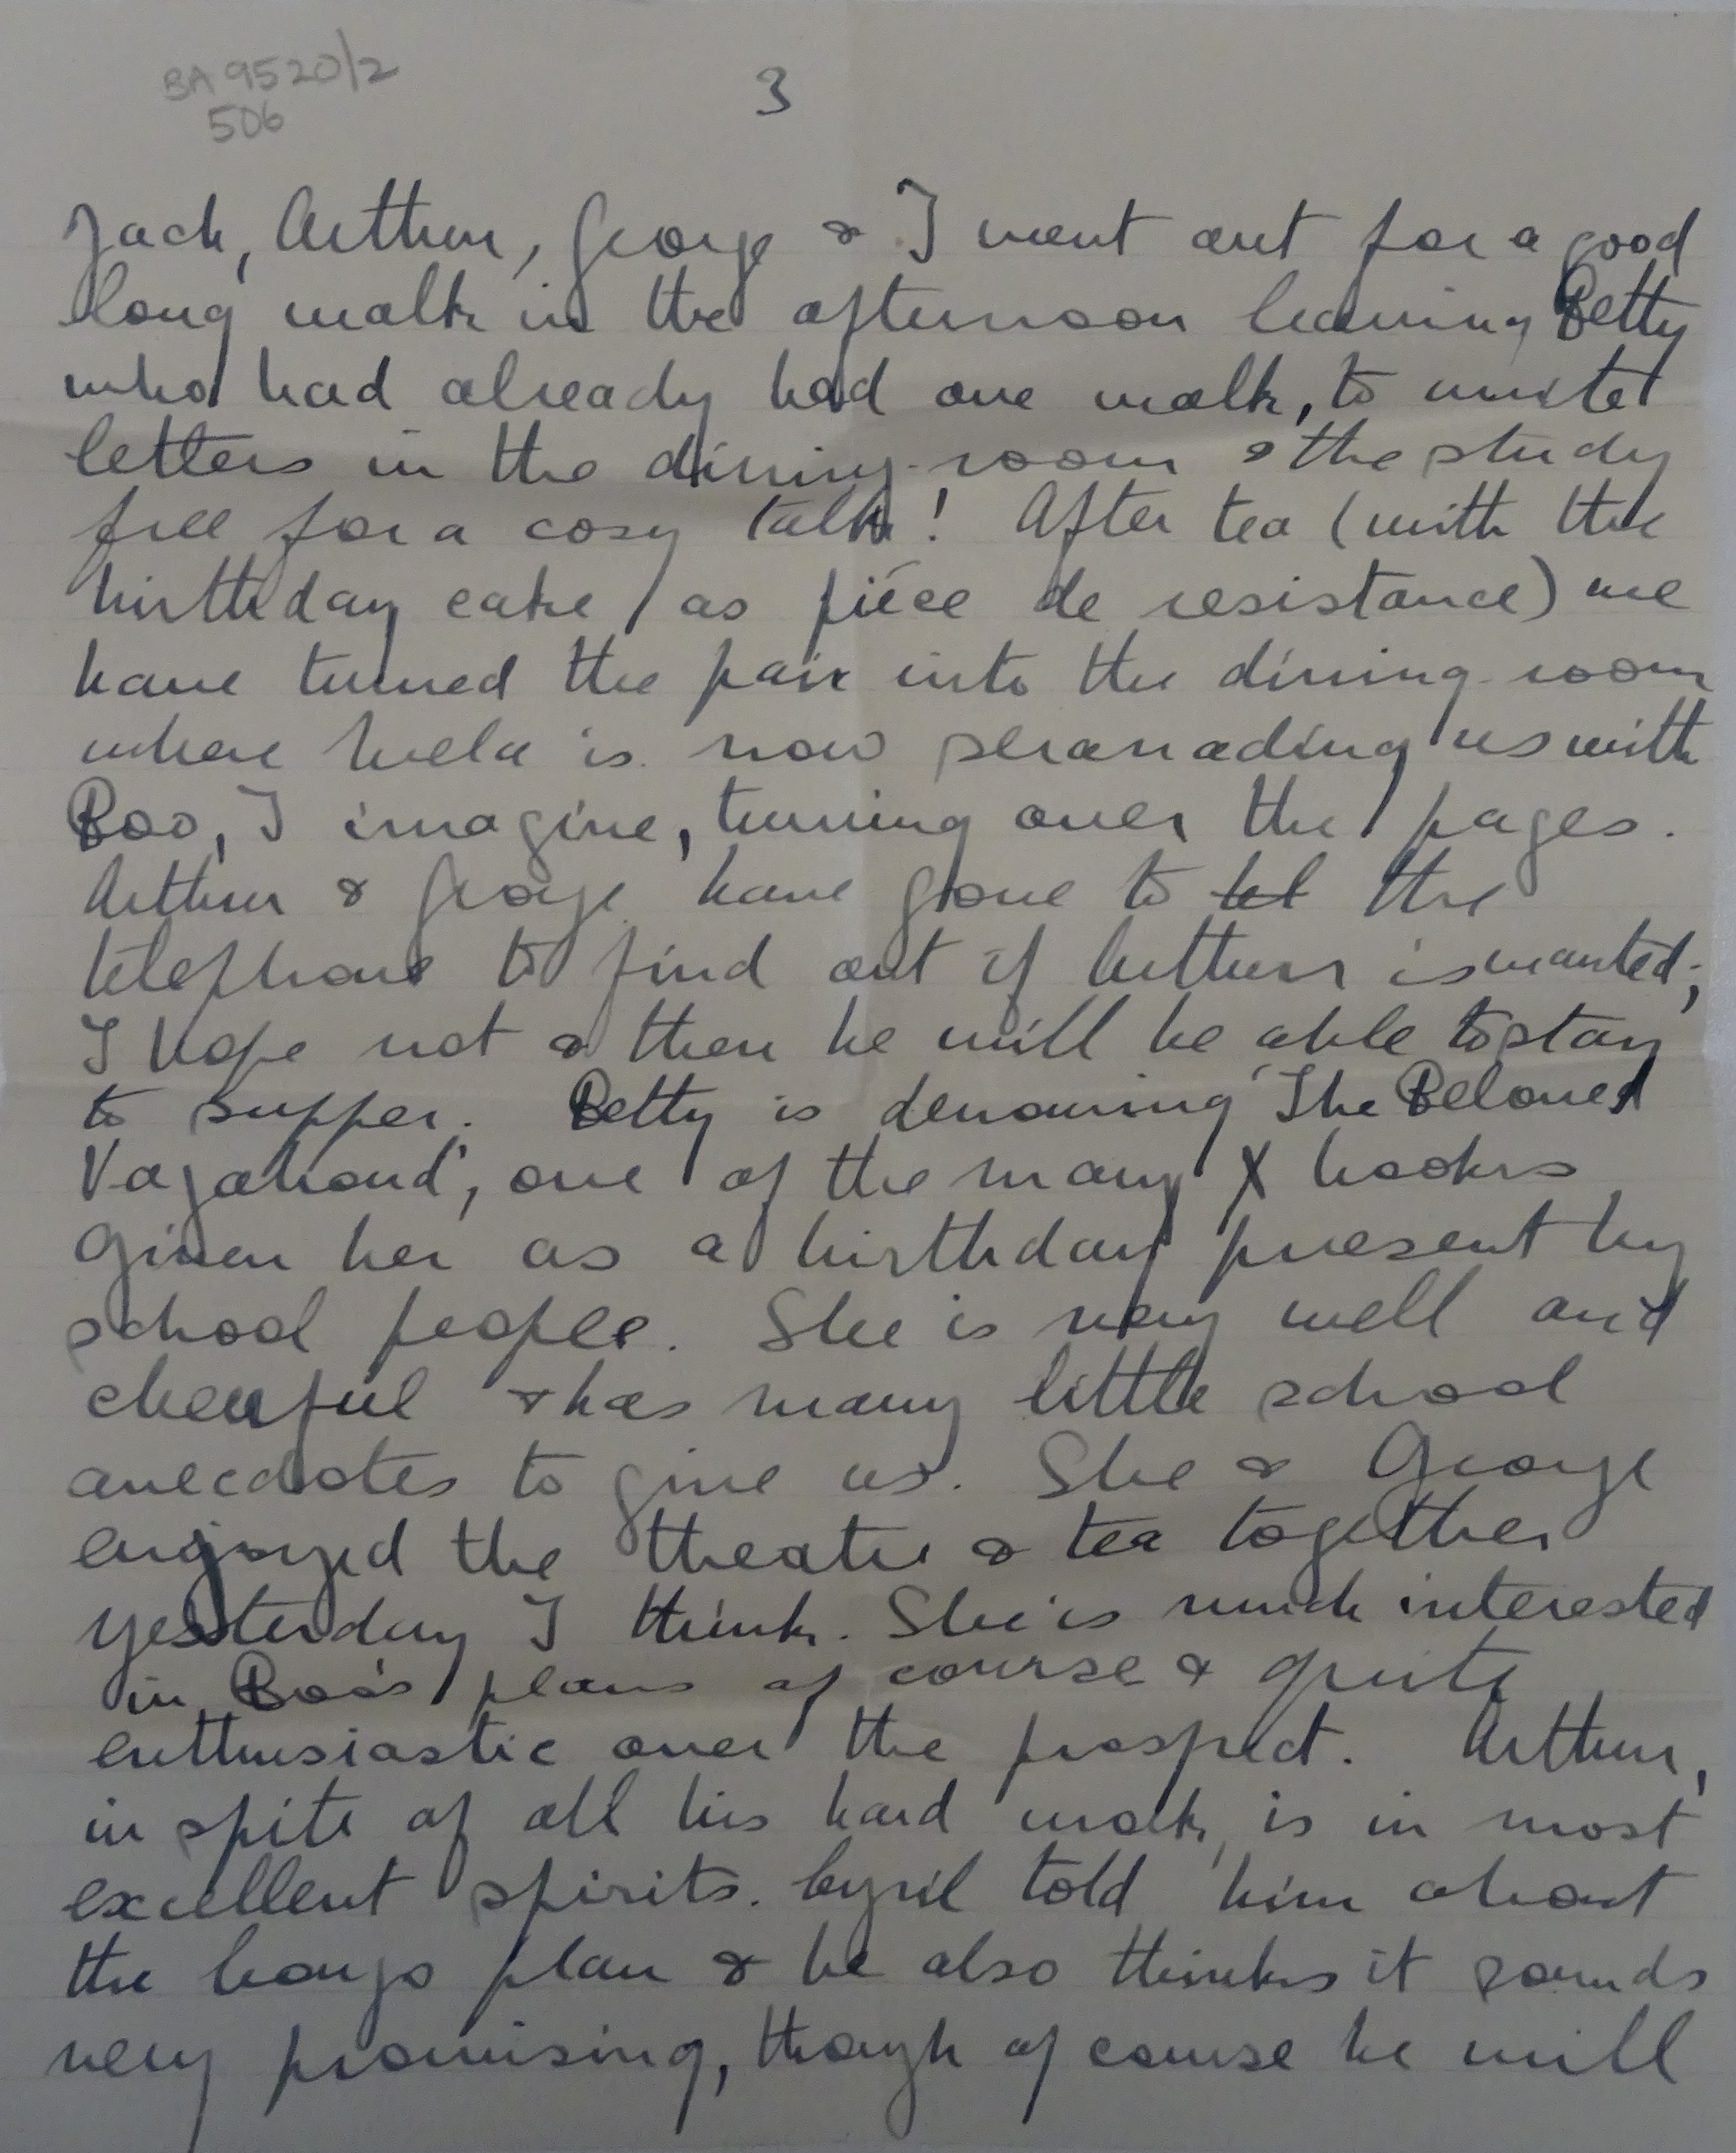 BA 9520/2
506
3
Jack, Arthur, George & I went out for a good
long walk in the afternoon leaving Betty
who had already had one walk, to write
letters in the dining-room & the study
free for a cosy talk! After tea (with the
birthday cake as piéce de resistance) we
have turned the pair into the dining-room
where is now seranading us with
Boo, I imagine, turning over the pages.
Arthur & George have gone to tel the
telephone to find out if Arthur is wanted;
I hope not & then he will be able to stay
to supper. Betty is devouring 'The Beloved
Vagabond', one of the many X books
given her as a birthday present by
school people. She is very well and
cheerful & has many little school
anecdotes to give us. She & George
enjoyed the theatre & tea together
yesterday I think. She is much interested
in Boo's plans of course & quite
enthusiastic over the prospect. Arthur,
in spite of all his hard work, is in most
excellent spirits. Cyril told him about
the plan & he also thinks it sounds
very promising, though of course he will